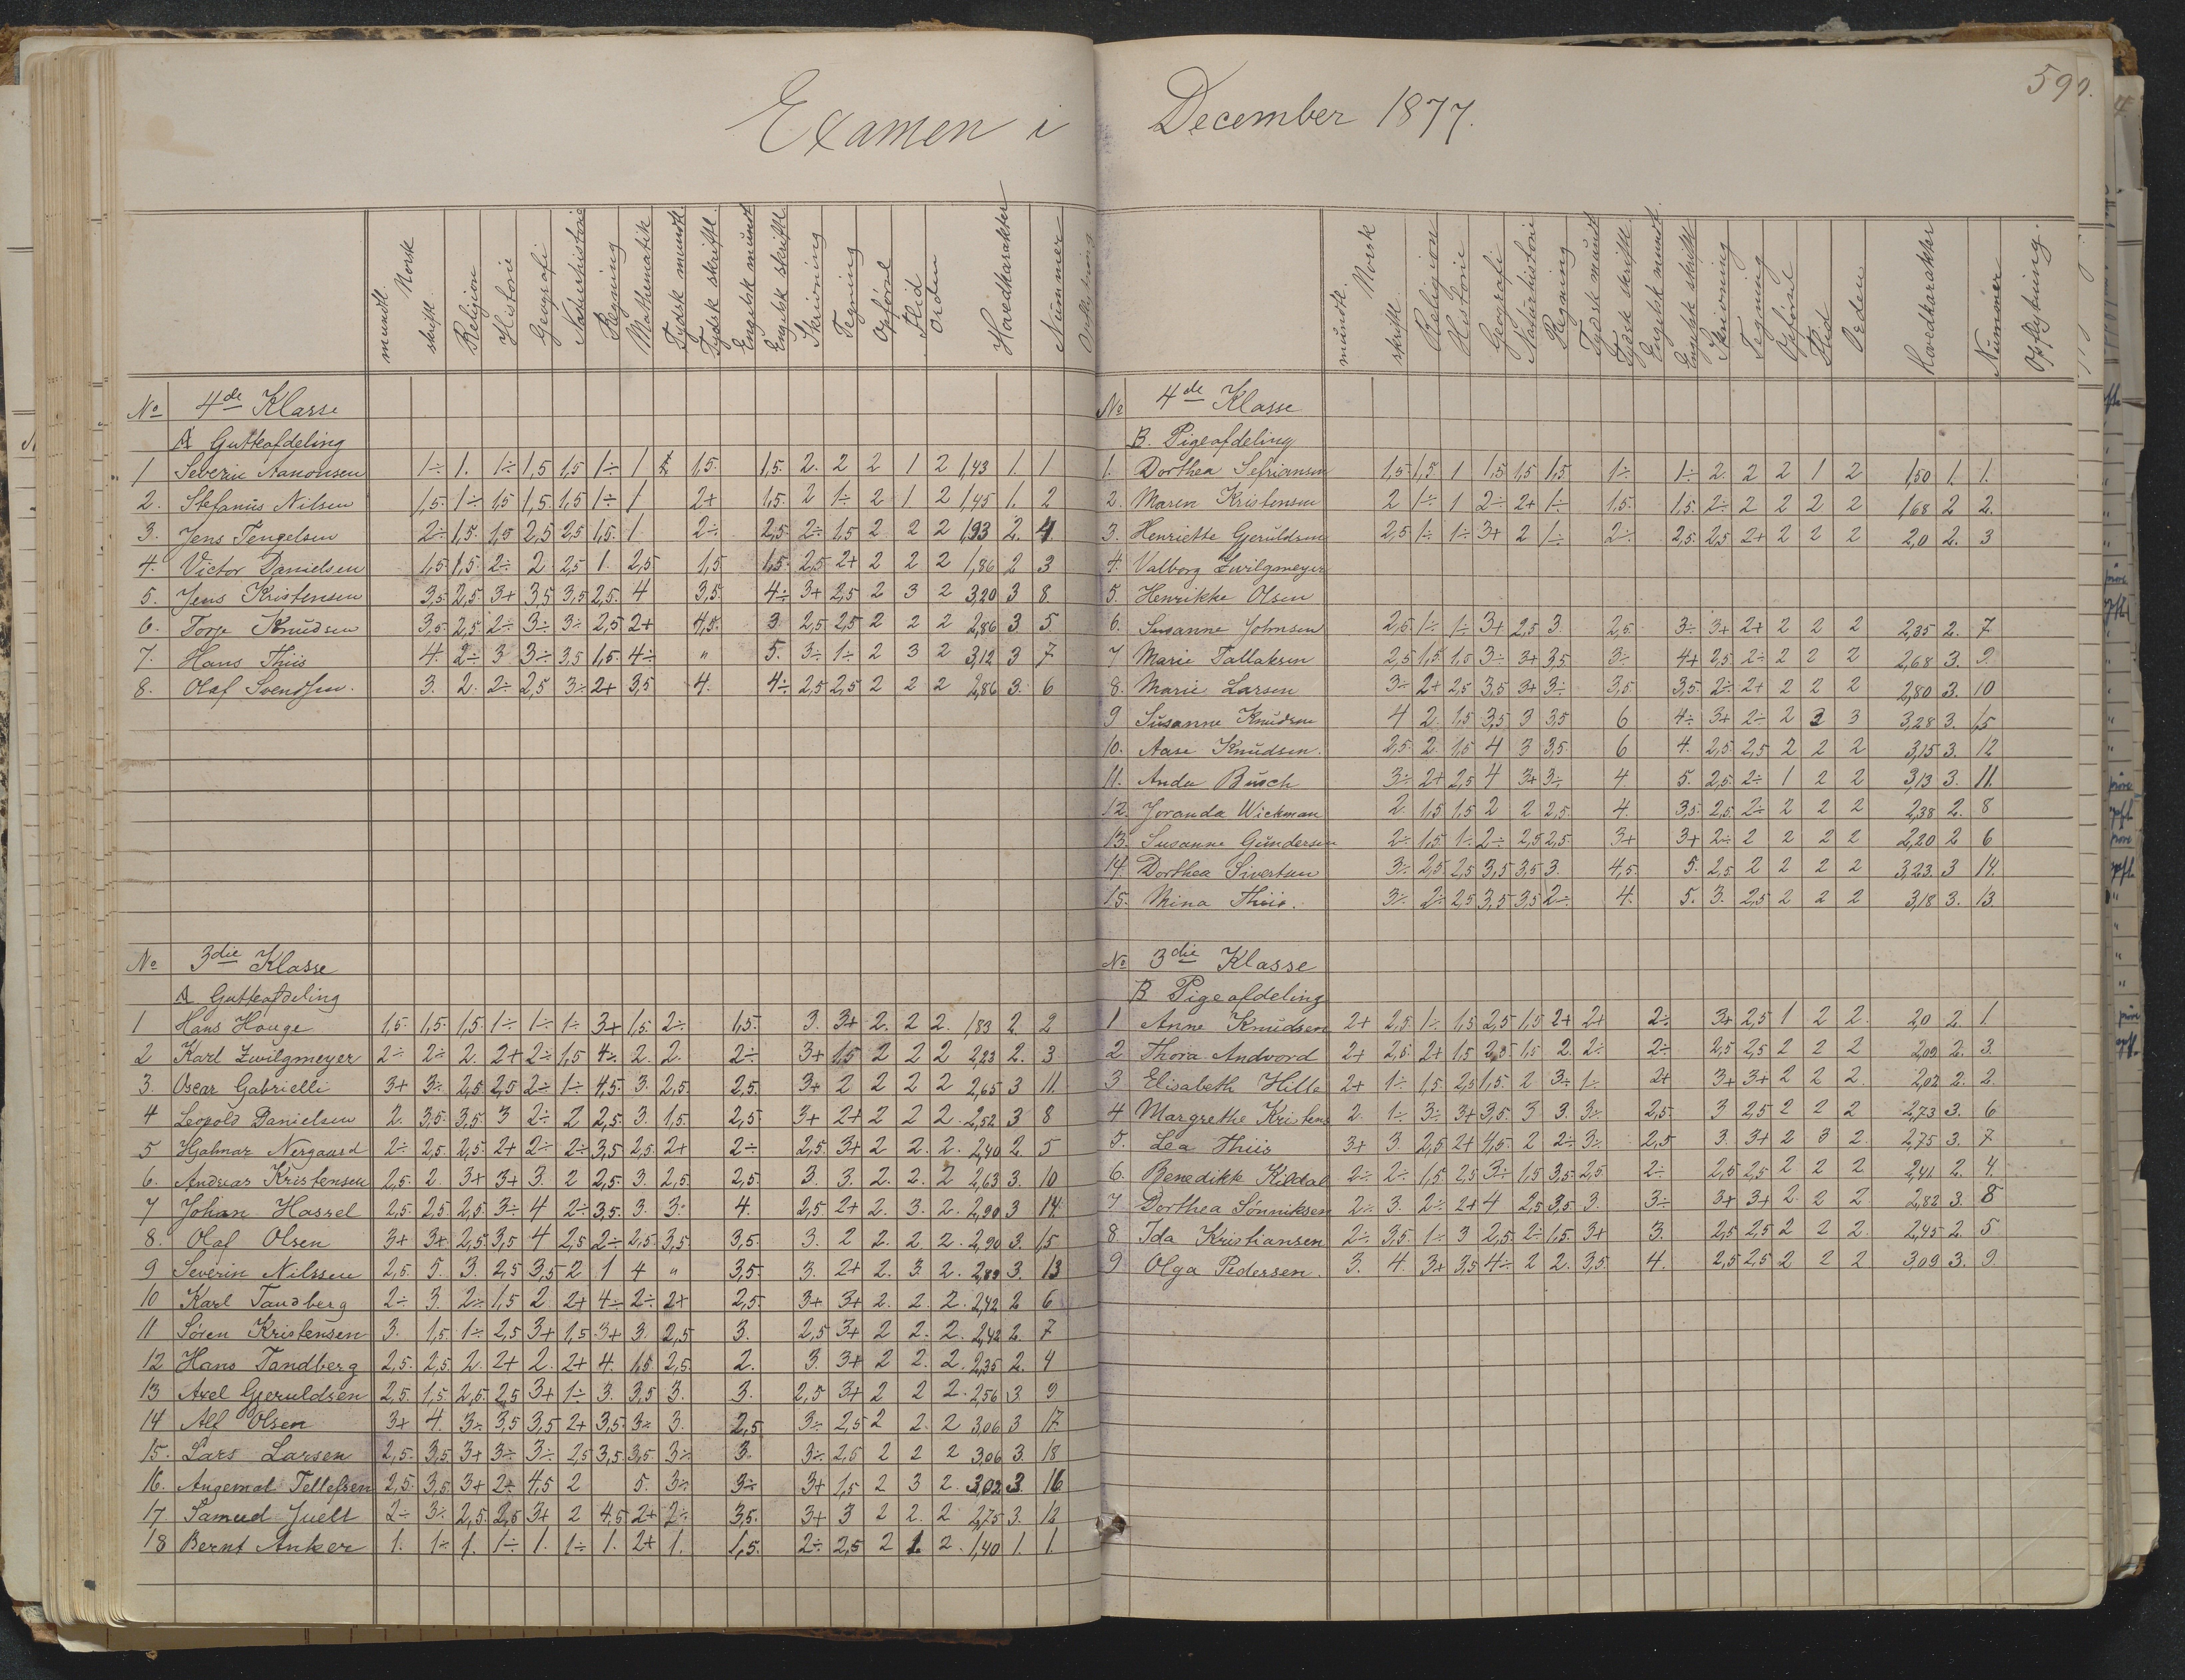 Examen i December 1877.
590.
mundtl. Norsk skriftl. Religion Historie Geografi Naturhistorie Regning Mathematik Tydsk mundtl. Tydsk skriftl. Engelsk mundt Engelsk skriftl. Skrivning Tegning Opförsel Flid Orden Hovedkarakter Nummer
No 4de Klasse
A Gutteafdeling
1 Severin Aanonsen 1÷ 1. 1÷ 1,5 1,5 1÷ 1 1,5. 1,5. 2. 2 2 1 2 1,43 1. 1
2. Stefanus Nilsen 1,5. 1÷ 1,5 1,5. 1,5 1÷ 1 2+ 1,5. 2 1÷ 2 1. 2 1,45 1. 2
3. Jens Tengelsen 2÷ 1,5. 1,5 2,5 2,5 1,5. 1. 2÷ 2,5. 2÷ 1,5 2 2 2 1,93 2. 4
4. Victor Danielsen 1,5. 1,5. 2÷ 2 2,5 1. 2,5 1,5 1,5. 2,5 2+ 2 2 2 1,86 2 3
5. Jens Kristensen 3,5 2,5. 3+ 3,5 3,5 2,5. 4 3,5. 4÷ 3+ 2,5 2 3 2 3,20 3 8.
6. Torje Knudsen 3,5. 2,5. 2÷ 3÷ 3÷ 2,5 2+ 4,5. 3 2,5 2,5 2 2 2 2,86 3 5
7. Hans Thiis 4. 2÷ 3 3÷ 3,5 1,5. 4÷ " 5. 3÷ 1÷ 2 3 2 3,12 3 7
8. Olaf Svendsen. 3. 2. 2÷ 2,5 3÷ 2+ 3,5 4. 4÷ 2,5 2,5 2 2 2 2,86 3. 6
No 3die Klasse
A Gutteafdeling
1 Hans Houge 1,5. 1,5. 1,5. 1÷ 1÷ 1÷ 3+ 1,5. 2÷ 1,5. 3. 3+ 2. 2 2. 1,83 2. 2
2 Karl Zwilgmeyer 2÷ 2÷ 2. 2+ 2÷ 1,5 4÷ 2. 2. 2÷ 3+ 1,5 2 2 2 2,23 2. 3
3. Oscar Gabrielli 3+ 3÷ 2,5. 2,5 2÷ 1÷ 4,5. 3. 2,5. 2,5. 3+ 2 2 2 2 2,65 3 11.
4 Leopold Danielsen 2. 3,5. 3,5. 3 2÷ 2 2,5. 3. 1,5. 2,5 3+ 2+ 2 2 2. 2,52 3 8
5 Hjalmar Nergaard 2÷ 2,5. 2,5. 2+ 2÷ 2÷ 3,5 2,5. 2+ 2÷ 2,5. 3+ 2 2. 2. 2,40 2. 5
6. Andreas Kristensen 2,5. 2. 3+ 3+ 3. 2 2,5. 3. 2,5. 2,5. 3. 3. 2. 2. 2 2,63 3. 10
7 Johan Hassel 2,5. 2,5 2,5. 3÷ 4 2÷ 3,5. 3. 3÷ 4. 2,5 2+ 2. 3. 2. 2,90 3 14
8. Olaf Olsen 3+ 3+ 2,5 3,5 4 2,5 2÷ 2,5. 3,5. 3,5. 3. 2 2. 2. 2. 2,90 3. 15
9 Severin Nilssen 2,5. 5. 3. 2,5 3,5 2 1 4 " 3,5. 3. 2+ 2. 3. 2. 2,89 3. 13
10 Karl Tandberg 2÷ 3. 2÷ 1,5 2 2+ 4÷ 2÷ 2+ 2,5. 3+ 3+ 2. 2. 2. 2,42 2 6
11 Sören Kristensen 3. 1,5 1÷ 2,5 3+ 1,5 3+ 3. 2,5 3. 2,5 3+ 2 2. 2. 2,42 2. 7
12 Hans Tandberg 2,5. 2,5. 2. 2+ 2. 2+ 4. 1,5 2,5. 2. 3. 3+ 2 2. 2. 2,35 2. 4
13 Axel Gjeruldsen 2,5. 1,5 2,5. 2,5 3+ 1÷ 3. 3,5 3. 3. 2,5 3+ 2 2 2. 2,56 3 9
14 Alf Olsen 3+ 4. 3÷ 3,5 3,5 2+ 3,5 3÷ 3. 2,5 3÷ 2,5 2 2. 2 3,06 3 17.
15. Lars Larsen 2,5. 3,5 3+ 3÷ 3÷ 2,5 3,5. 3,5 3÷ 3. 3÷ 2,5 2 2 2 3,06 3. 18
16. Angemal Tellefsen 2,5. 3,5. 3+ 2÷ 4,5 2 5. 3÷ 3÷ 3+ 1,5 2 3 2. 3,02 3. 16
17 Samuel Juell 2÷ 3÷ 2,5. 2,5 3+ 2 4,5 2+ 2÷ 3,5. 3+ 3 2 2. 2 2,75 3. 12
18 Bernt Anker 1. 1÷ 1. 1÷ 1. 1÷ 1. 2+ 1. 1,5. 2÷ 2,5 2 1. 2. 1,40 1. 1.
mundtl. Norsk skriftl. Religion Historie Geografi Naturhistorie Regning Tydsk mundtl Tydsk skriftl. Engelsk mundtl. Engelsk skriftl Skrivning Tegning Opförsel Flid Orden Hovedkarakter Nummer Opflytning.
No 4de Klasse
B. Pigeafdeling
1. Dorthea Sefriansen 1,5 1,5 1 1,5 1,5 1,5 1÷ 1÷ 2. 2 2 1 2 1,50 1. 1.
2. Maren Kristensen 2 1÷ 1 2÷ 2+ 1÷ 1,5. 1,5. 2÷ 2 2 2 2 1,68 2 2.
3. Henriette Geruldsen 2,5 1÷ 1÷ 3+ 2 1÷ 2÷ 2,5. 2,5 2+ 2 2 2 2,0 2. 3
4. Valborg Zwilgmeyer
5. Henrikke Olsen
6. Susanne Johnsen 2,5 1÷ 1÷ 3+ 2,5 3. 2,5. 3÷ 3+ 2+ 2 2 2 2,35 2. 7
7 Marie Tallaksen 2,5 1,5 1,5 3÷ 3+ 3,5 3÷ 4+ 2,5. 2÷ 2 2 2 2,68 3. 9.
8. Marie Larsen 3÷ 2+ 2,5 3,5 3+ 3÷ 3,5. 3,5. 2÷ 2+ 2 2 2 2,80 3. 10
9 Susanne Knudsen 4 2 1,5 3,5 3 3,5 6 4÷ 3+ 2÷ 2 3 3 3,28 3. 15
10. Aase Knudsen. 2,5. 2. 1,5 4 3 3,5. 6 4. 2,5. 2,5 2 2 2 3,15 3. 12
11. Anda Busch 3÷ 2+ 2,5 4 3+ 3÷ 4. 5. 2,5. 2÷ 1 2 2 3,13 3. 11.
12. Joranda Wickman 2. 1,5 1,5 2 2 2,5. 4. 3,5. 2,5. 2÷ 2 2 2 2,38 2. 8
13. Susanne Gundersen 2÷ 1,5. 1÷ 2÷ 2,5 2,5. 3+ 3+ 2÷ 2 2 2 2 2,20 2 6
14. Dorthea Sivertsen 3÷ 2,5 2,5 3,5 3,5 3. 4,5. 5. 2,5 2 2 2 2 3,23. 3 14.
15. Mina Thiis. 3÷ 2÷ 2,5 3,5 3,5 2÷ 4. 5. 3. 2,5 2 2 2 3,18 3. 13.
No 3die Klasse
B Pigeafdeling
1 Anne Knudsen 2+ 2,5. 1÷ 1,5 2,5 1,5 2+ 2+ 2÷ 3+ 2,5 1 2 2. 2,0 2. 1.
2 Thora Andvord 2+ 2,5. 2+ 1,5 1,5 2. 2÷ 2÷ 2,5 2,5 2 2 2 2,09 2. 3.
3 Elisabeth Hille 2+ 1÷ 1,5 2,5 1,5. 2 3÷ 1÷ 2+ 3+ 3+ 2 2 2. 2,02 2. 2.
4 Margrethe Kristens 2. 1÷ 3÷ 3+ 3,5. 3 3. 3÷ 2,5. 3 2,5 2 2 2 2,73 3. 6
5. Lea Thiis 3+ 3. 2,5 2+ 4,5 2 2÷ 3÷ 2,5 3. 3+ 2 3 2. 2,75 3. 7
6. Benedikk Kildal 2÷ 2÷ 1,5 2,5 3÷ 1,5 3,5. 2,5 2÷ 2,5 2,5 2 2 2 2,41 2. 4
7 Dorthea Sönniksen 2÷ 3. 2÷ 2+ 4 2,5 3,5 3. 3÷ 3+ 3+ 2 2 2 2,82 3. 8
8. Ida Kristiansen 2÷ 3,5. 1÷ 3 2,5 2÷ 1,5. 3+ 3. 2,5 2,5 2 2 2. 2,45 2. 5
9 Olga Pedersen. 3. 4. 3+ 3,5 4÷ 2 2. 3,5. 4. 2,5 2,5 2 2 2 3,09 3. 9.